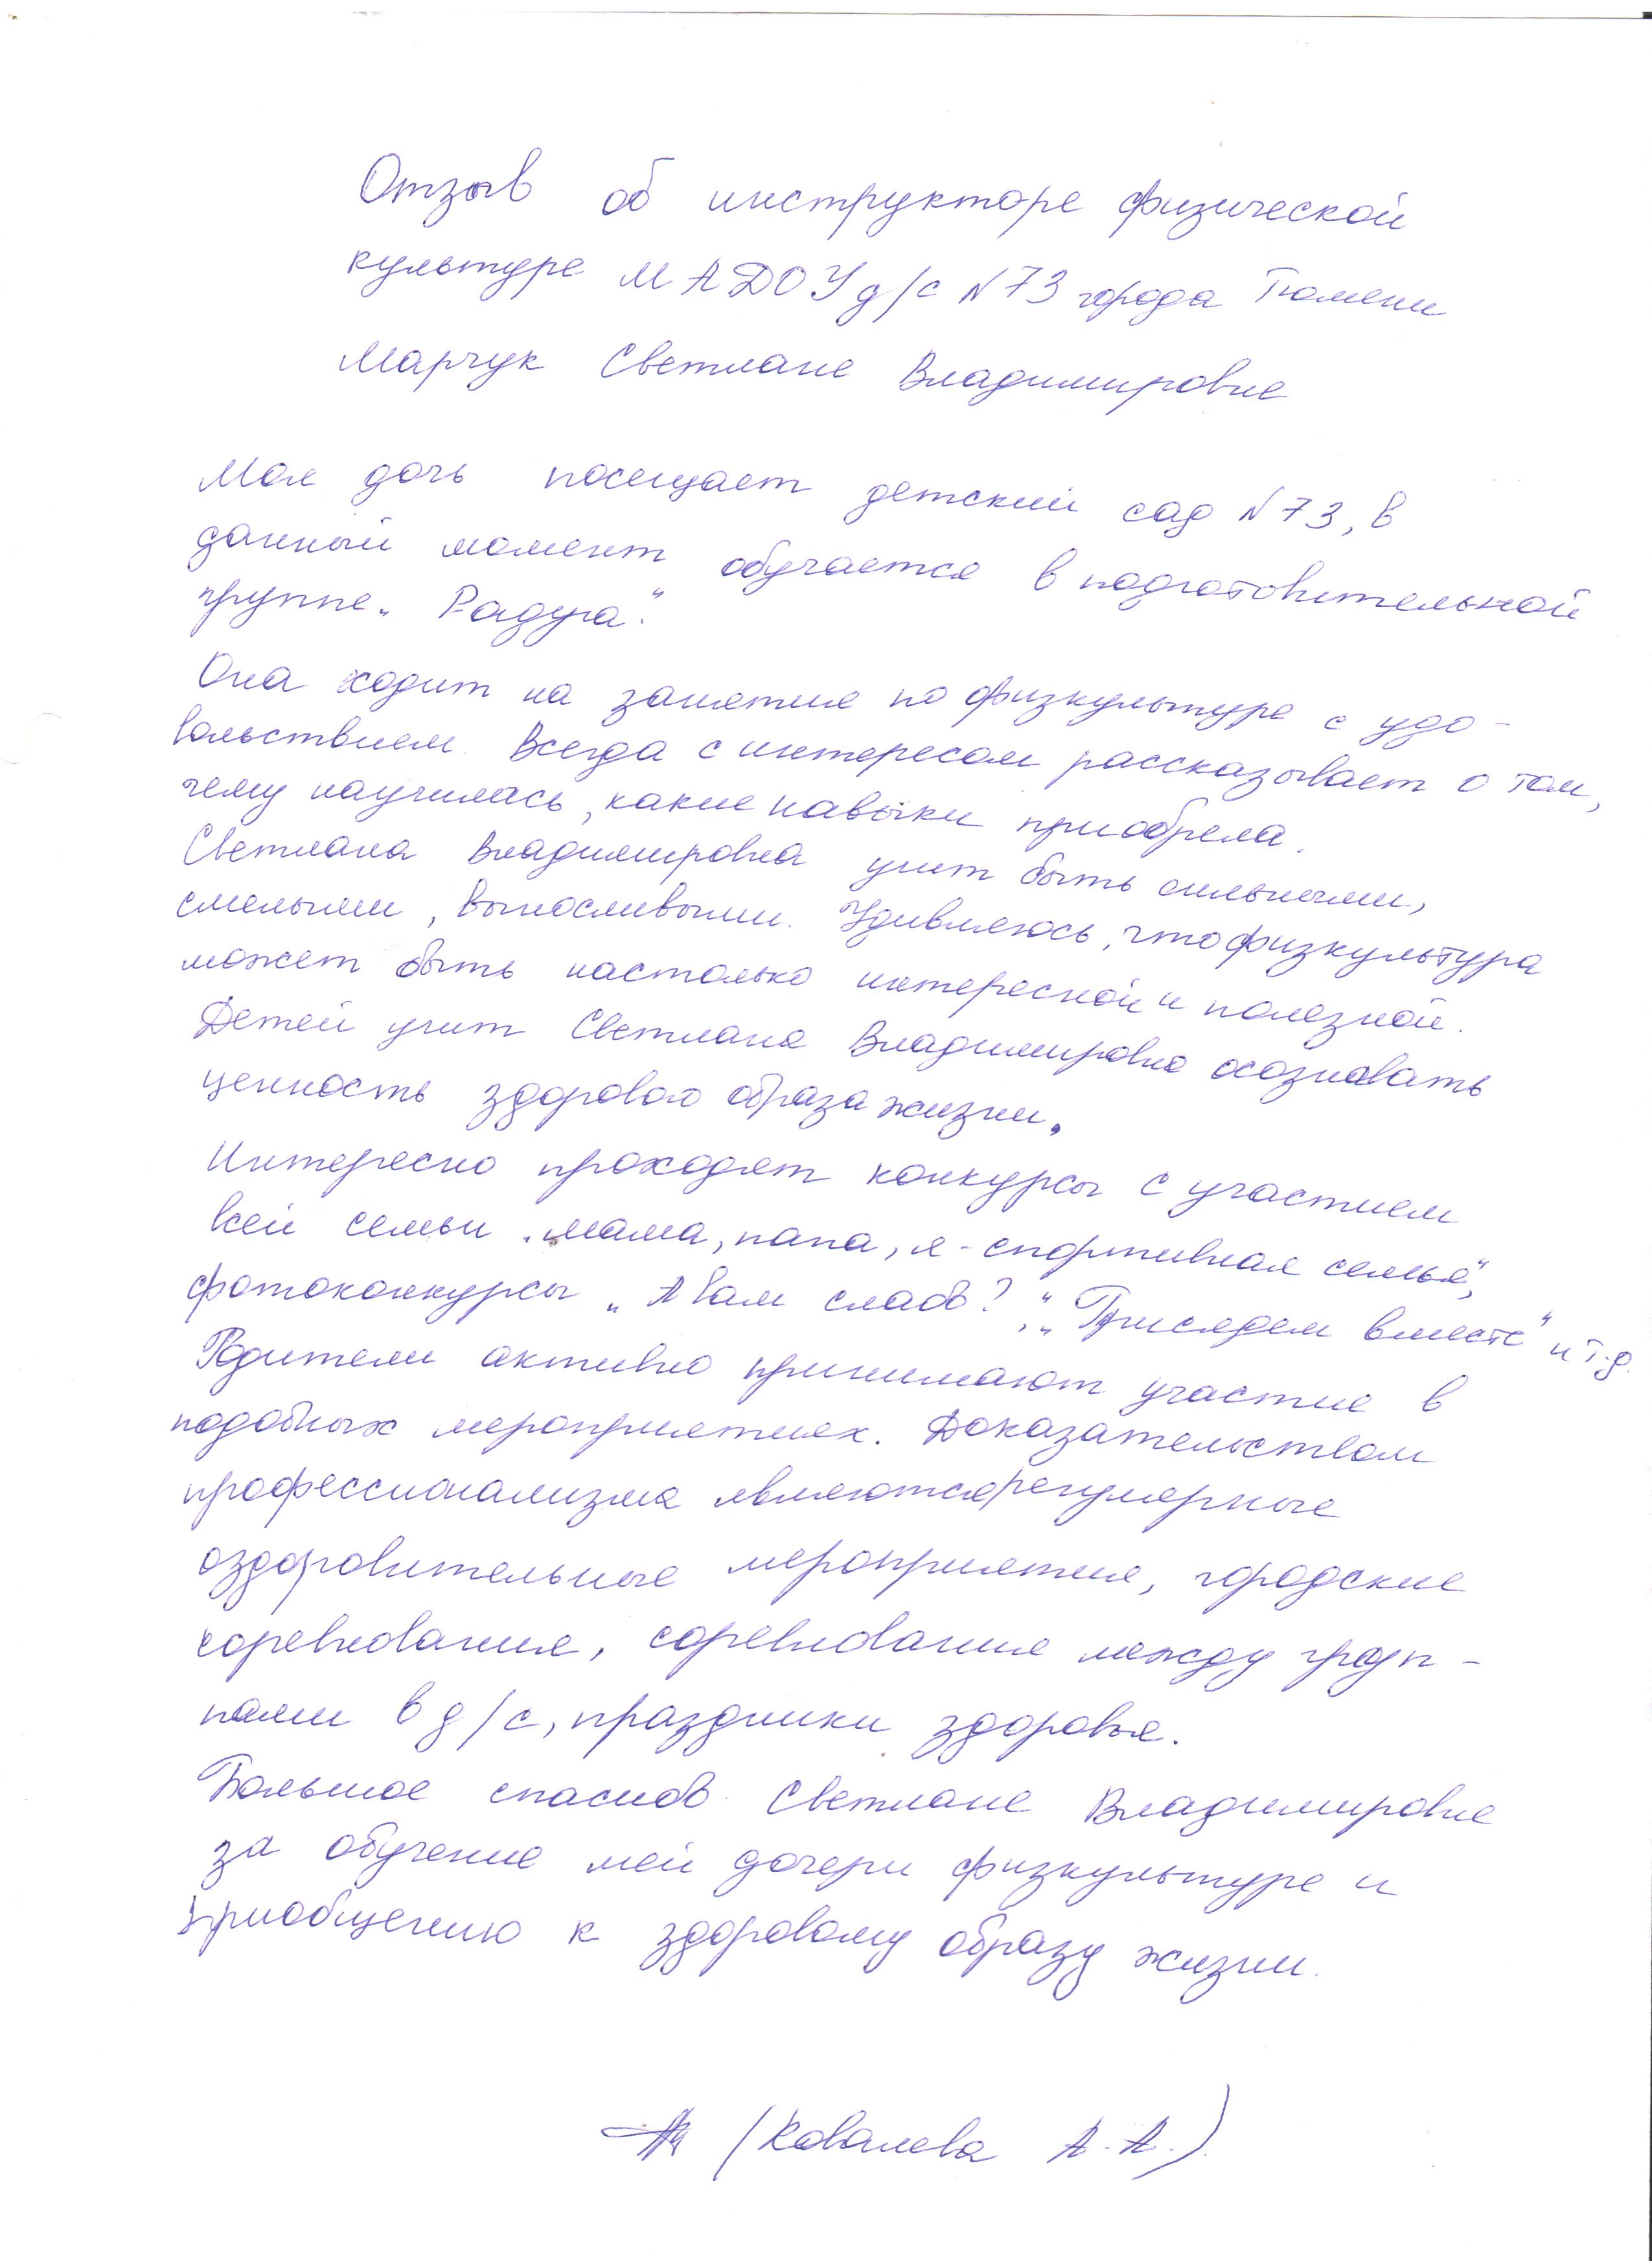 Отзыв об инструкторе физической
культуре МАДОУ д/с N73 города Тюмени
Марчук Светлане Владимировне
Моя дочь посещает детский сад N73, в
данный момент обучается в подготовительной
группе „Радуга“.
Она ходит на занятие по физкультуре с удо-
вольствием. Всегда с интересом рассказывает о том,
чему научилась, какие навыки приобрела.
Светлана Владимировна учит быть сильными,
смелыми, выносливыми. Удивляюсь, что физкультура
может быть настолько интересной и полезной.
Детей учит Светлана Владимировна осознавать
ценность здорового образа жизни.
Интересно проходят конкурсы с участием
всей семьи „мама, папа, я - спортивная семья“,
фотоконкурсы „А вам слабо?“, „Присядем вместе“ и т.д.
Родители активно принимают участие в
подобных мероприятиях. Доказательством
профессионализма являются регулярные
оздоровительные мероприятия, городские
соревнования, соревнования между груп-
пами в д/с, праздники здоровья.
Большое спасибо Светлане Владимировне
за обучение моей дочери физкультуре и
приобщению к здоровому образу жизни.
(Ковалева А.А.)